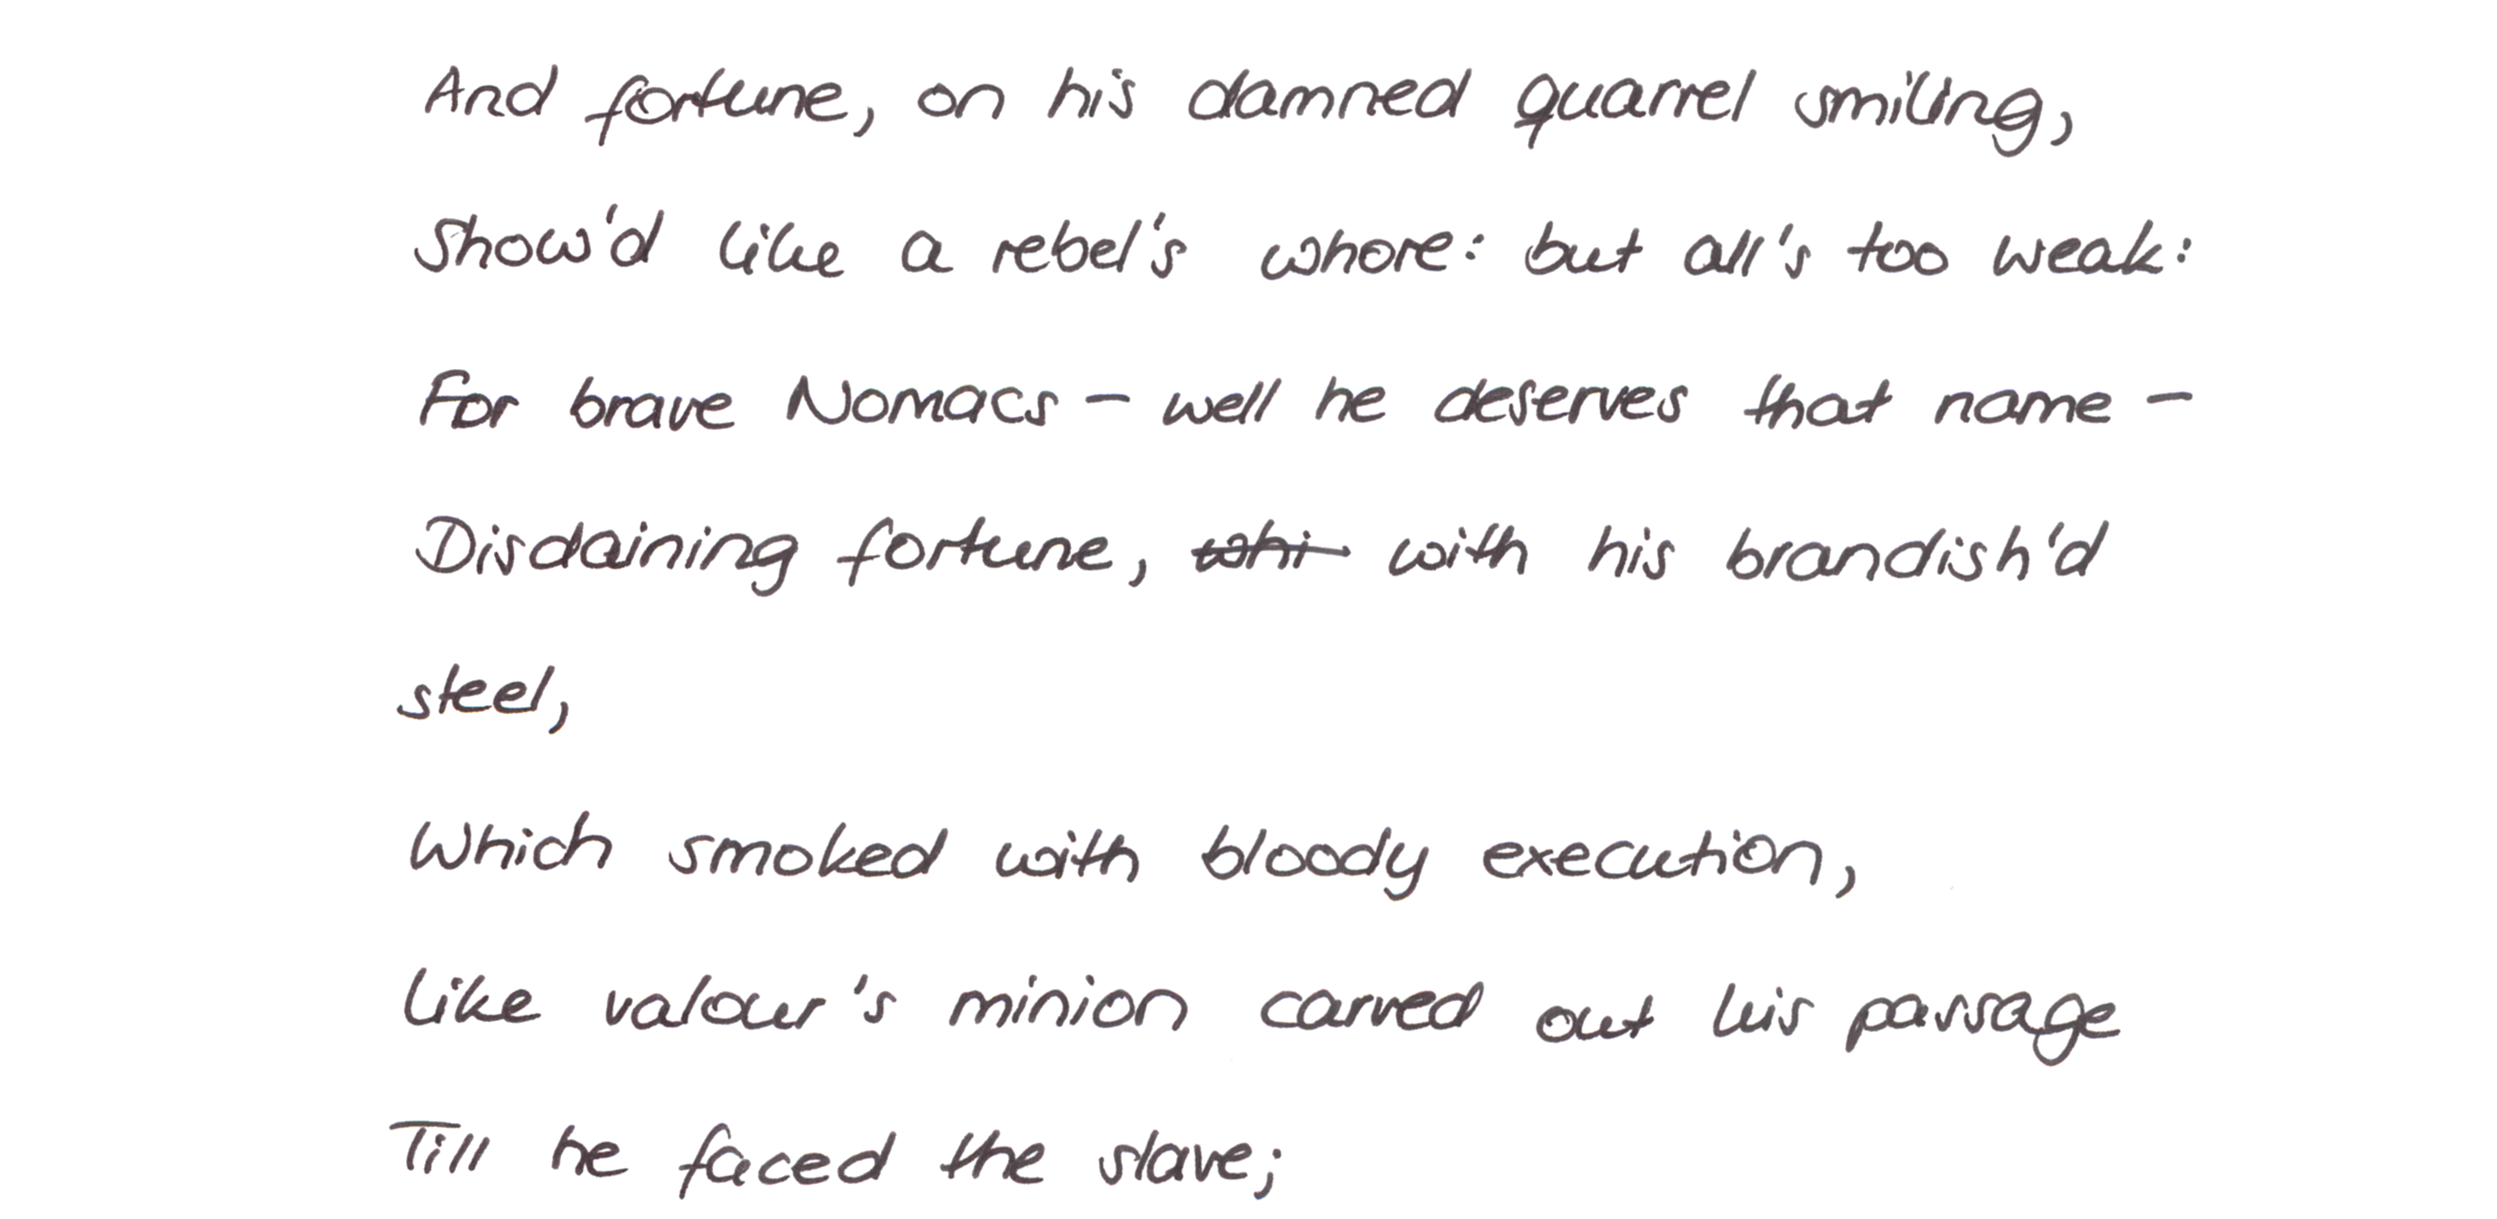 And fortune, on his damned quarrel smiling,
Show'd like a rebel's whore: but all's too weak:
For brave Nomacs - well he deserves that name -
Disdaining fortune, whi with his brandish'd
steel,
Which smoked with bloody execution,
Like valour's minion carved out his passage
Till he faced the slave;